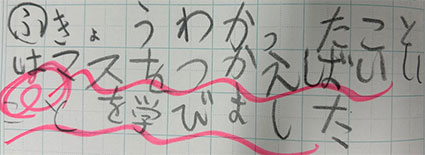 ふきょうわかったこと
はマスをつかえばいい
ことを学びました